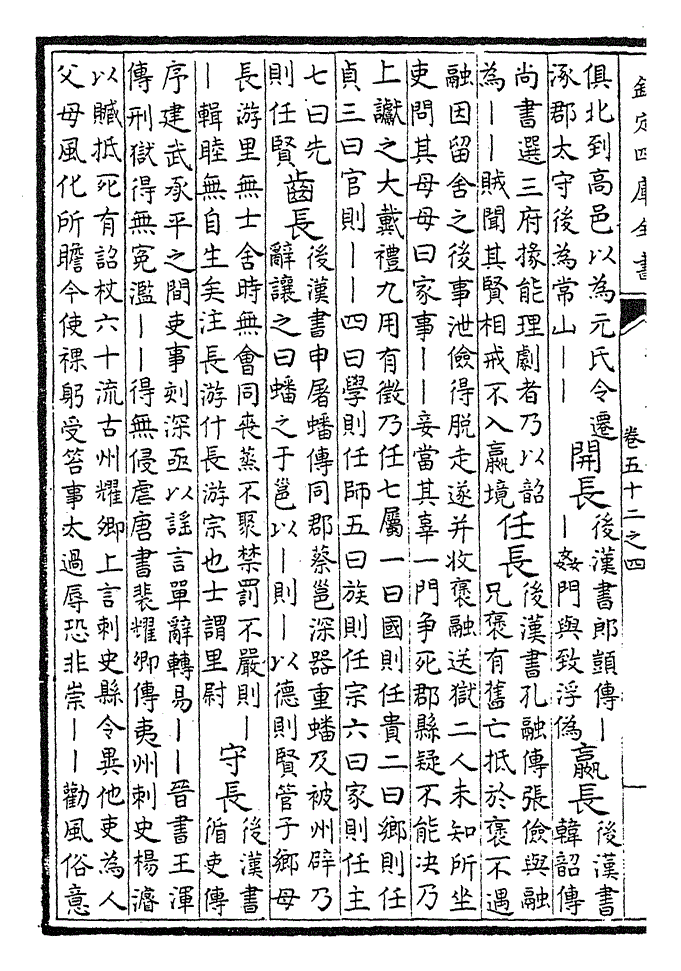 欽定四庫全書
卷五十二之四
俱北到高邑以為元氏令遷
涿郡太守後為常山｜｜
開長
後漢書郎顗傳｜
｜姦門與致浮偽
嬴長
後漢書
韓韶傳
尚書選三府掾能理劇者乃以韶
為｜｜賊聞其賢相戒不入嬴境
任長
後漢書孔融傳張儉與融
兄褒有舊亡抵於褒不遇
融因留舍之後事泄儉得脫走遂并收褒融送獄二人未知所坐
吏問其母母曰家事｜｜妾當其辜一門争死郡縣疑不能决乃
上讞之大戴禮九用有徵乃任七屬一曰國則任貴二曰鄉則任
貞三曰官則｜｜四曰學則任師五曰族則任宗六曰家則任主
七曰先
則任賢
齒長
後漢書申屠蟠傳同郡蔡邕深器重蟠及被州辟乃
辭讓之曰蟠之于邕以｜則｜以德則賢管子鄉母
長游里無士舍時無會同喪蒸不聚禁罰不嚴則｜
｜輯睦無自生矣注長游什長游宗也士謂里尉
守長
後漢書
循吏傳
序建武永平之間吏事刻深亟以謡言單辭轉易｜｜晉書王渾
傳刑獄得無寃濫｜｜得無侵虐唐書裴耀卿傳夷州刺史楊濬
以贓抵死有詔杖六十流古州耀卿上言刺史縣令異他吏為人
父母風化所瞻今使裸躬受笞事太過辱恐非崇｜｜勸風俗意